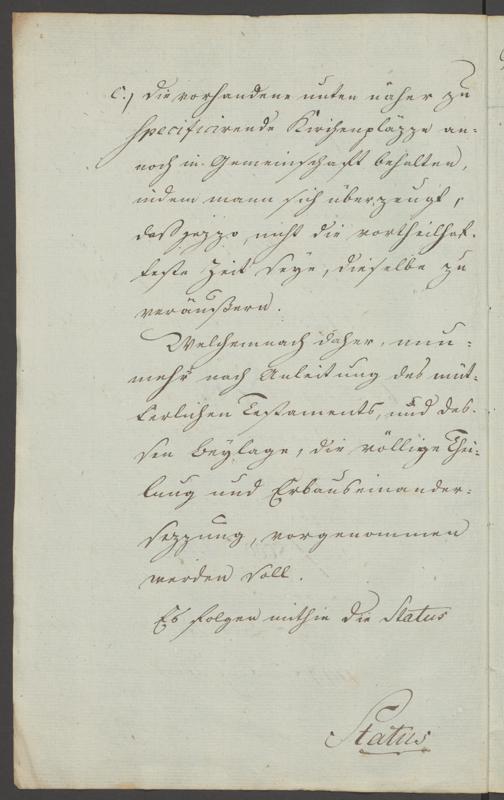 c.) die vorhandene unten näher zu
specificirende Kirchenpläzze an-
noch in Gemeinschaft behalten,
indem mann sich überzeugt,
daß jezzo, nicht die vortheilhaf-
teste Zeit seye, dieselbe zu
veräußern.
Welchemnach daher, nun-
mehr nach Anleitung des müt-
terlichen Testaments, und des-
sen Beylage, die völlige Thei-
lung und Erbauseinander-
sezzung, vorgenommen
werden soll.
Es folgen mithin die Status
Status